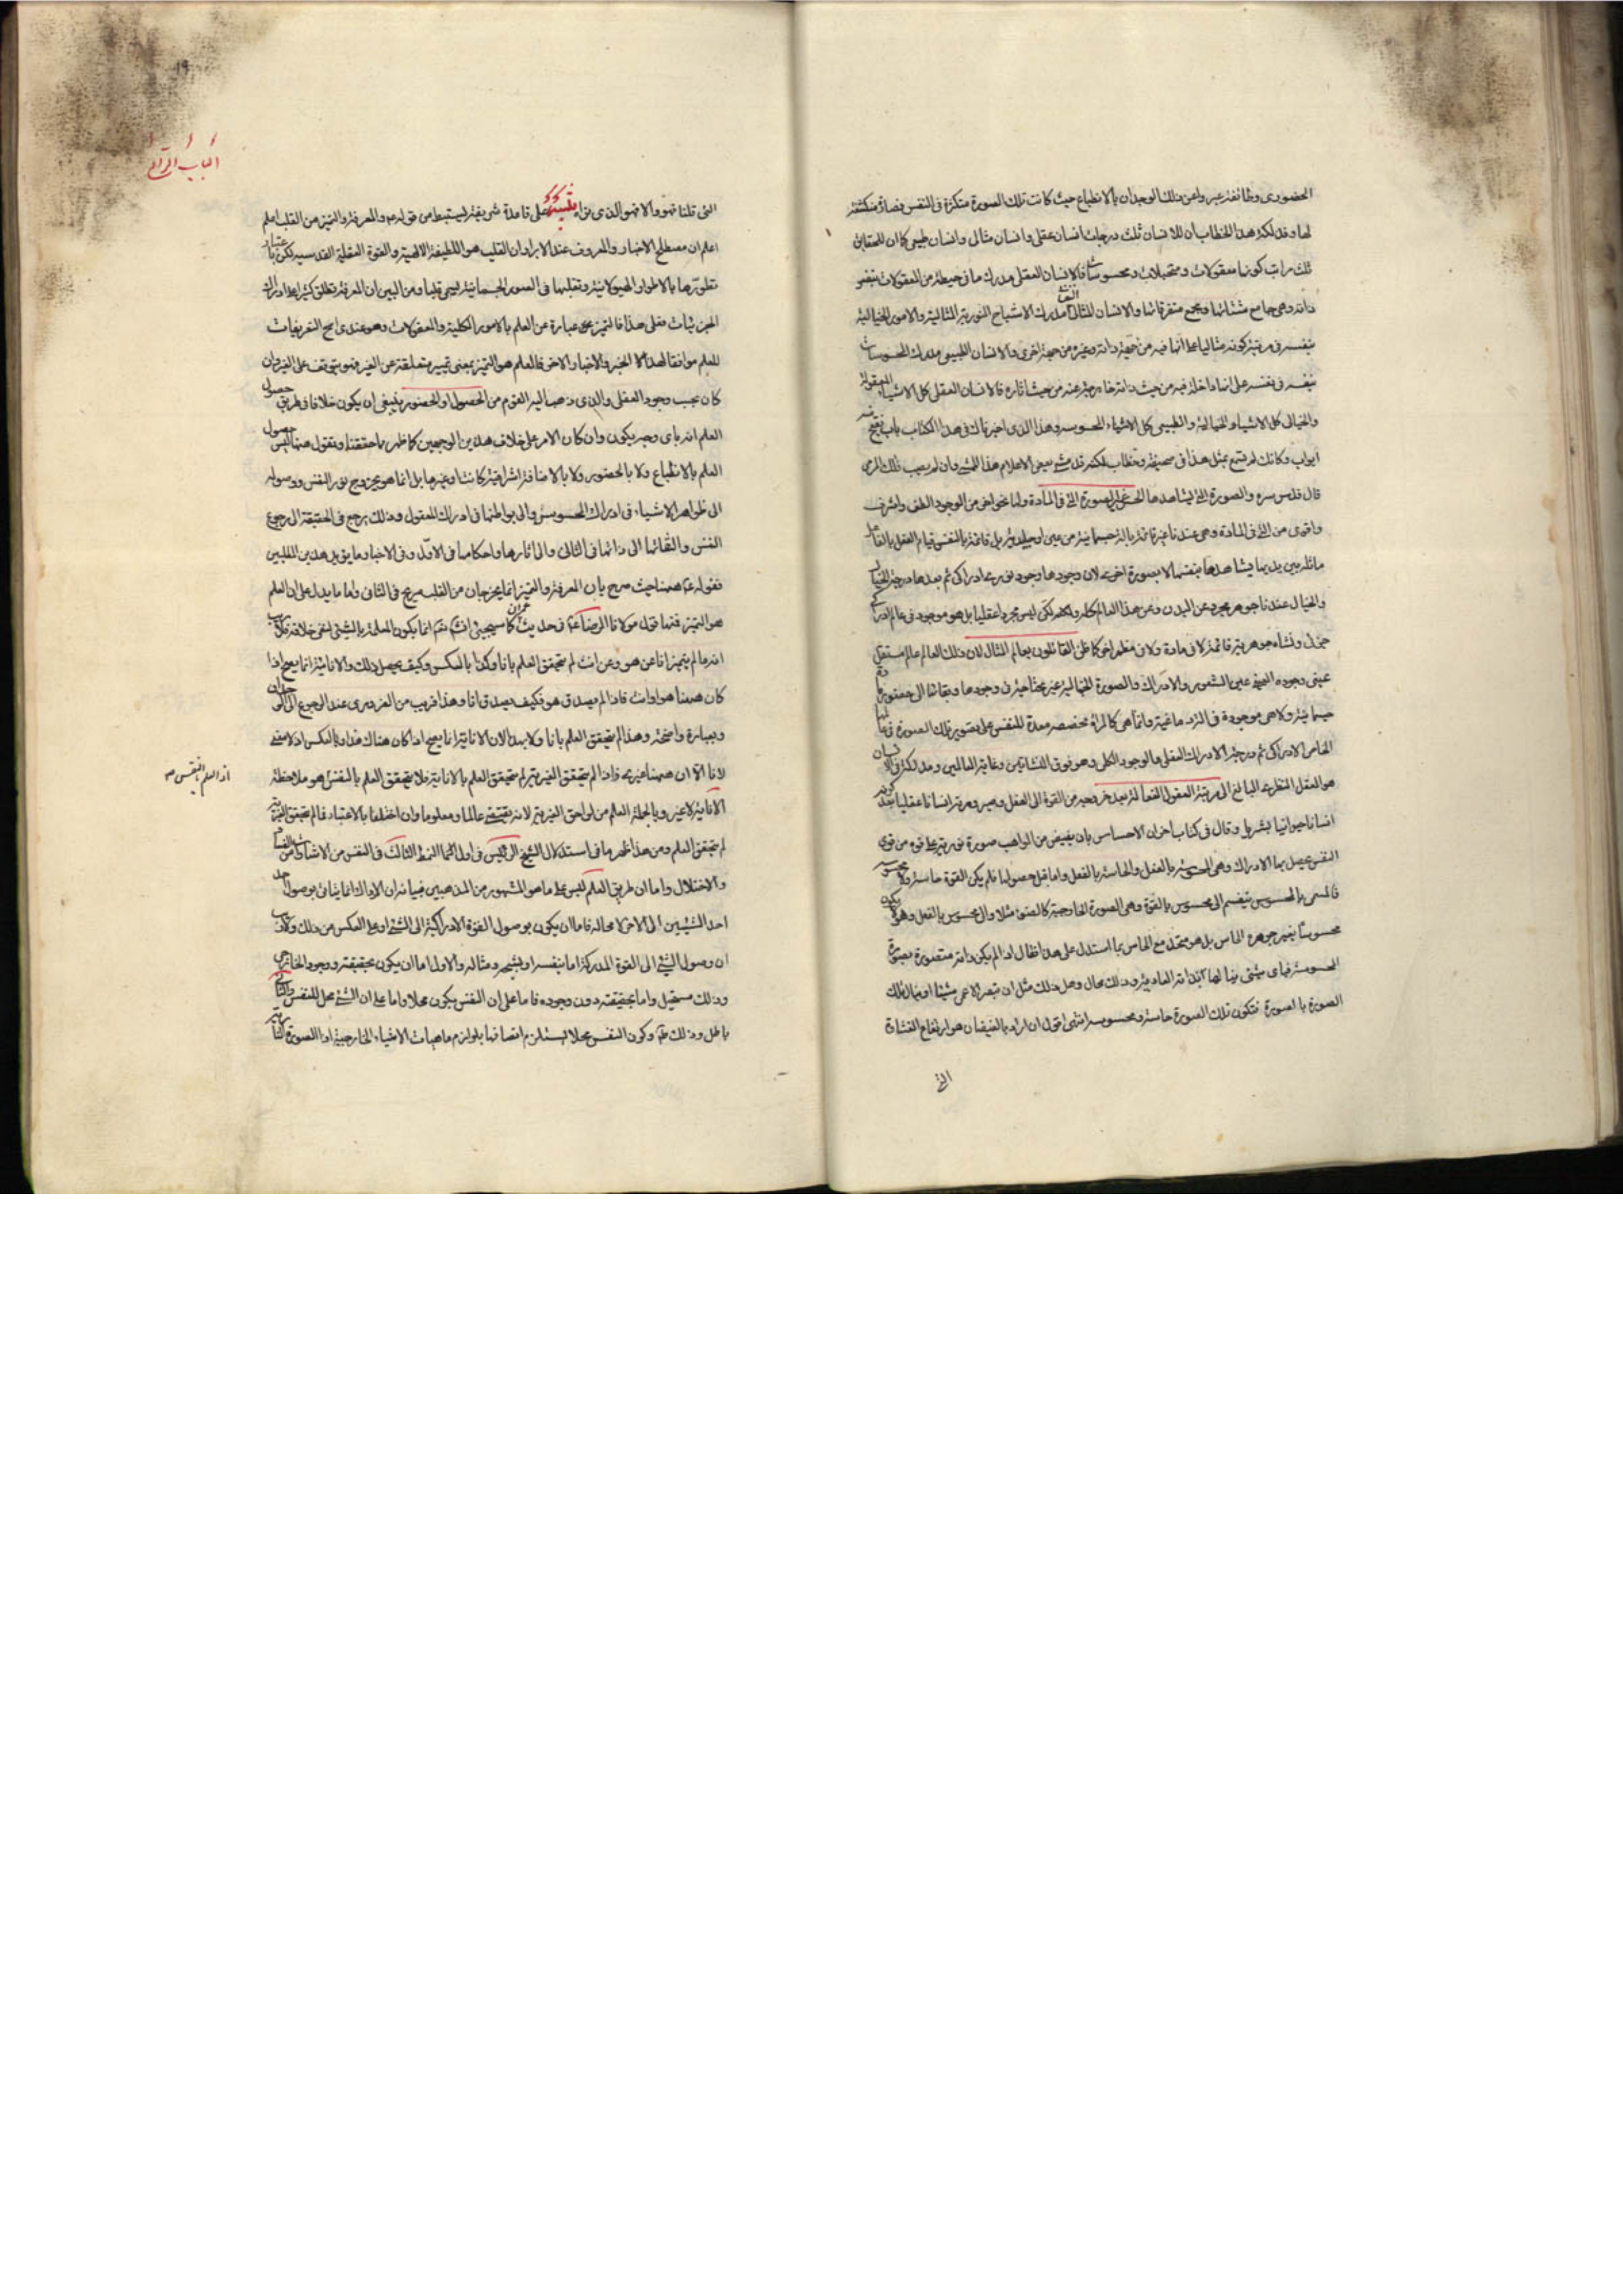 الحضوری وطائفة عبروا عن ذلك الوجدان بالانطباع حيث كانت تلك الصورة متكررة فی النفس فصارت منكشفة
لها وقد لكة هذا الخطاب ان للانسان ثلث درجات انسان عقلی وانسان مثالی وانسان طبيعی كما ان للحقايق
ثلث مراتب كونها معقولات ومتخيلات ومحسوسات فالانسان العقلی مدرك ما فی حيطته من المعقولات بنفس
ذاته وهی جامع مشتاتها ومجمع متفرقاتها والانسان المثالی مدرك الاشباح النورية المثالية والامور الخيالية
بنفسه فی مرتبة كونه مثاليا علی انها فيه من جهة ذاته وغيره من جهة اخری والانسان الطبيعی مدرك المحسوسات
بنفسه فی نفسه علی انها داخلة فيه من حيث ذاته خارجة عنه من حيث اثاره فالانسان العقلی كل الاشياء المعقولة
والخيالی كل الاشياء الخيالية والطبيعی كل الاشياء المحسوسة وهذا الذی اخبرناك فی هذا الكتاب باب يفتح منه
ابواب وكانك لم تسمع بمثل هذا فی صحيفة وخطاب لكنه قد مشی بعض الاعلام هذا الممشی وان لم يصب ذلك المرمی
قال قدس سره والصورة التی يشاهدها الحس غير الصورة التی فی المادة ولها نحو اخر من الوجود الطف واشرف
واقوی من التی فی المادة وهی عندنا غير قائمة بالة جسمانية من عين او جليدية بل قائمة بالنفس قيام الفعل بالفاعل
ماثلة بين يديها يشاهدها بنفسها لا بصورة اخری لان وجودها وجود نوری ادراكی ثم بعدها درجة الخيال
والخيال عندنا جوهر مجرد عن البدن وعن هذا العالم كله لكن ليس مجردا عقليا بل هو موجود فی عالم ادراكی
جزئی ونشأه جوهرية قائمة لا فی مادة ولا فی مظهر اخر كما ظن القائلون بعالم المثال لان ذلك العالم عالم مستقل
عينی وجوده العينی عين الشعور والادراك والصورة الخيالية غير محتاجة فی وجودها وبقائها الی حضور مادة
جسمانية ولا هی موجودة فی الروح الدماغية وانما هی كالمرأة مخصصة معدة للنفس علی تصوير تلك الصورة فی عالمها
الخاص الادراكی ثم درجة الادراك العقلی والوجود الكلی وهو فوق النشأتين وغاية العالمين ومدركه فی الانسان
هو العقل النظری البالغ الی مرتبة العقول الفعالة بعد خروجه من القوة الی الفعل وصيرورته انسانا عقليا بعد كونه
انسانا حيوانيا بشريا وقال فی كتاب اخر ان الاحساس بان يفيض من الواهب صورة نورية علی قوة من قوی
النفس يحصل بها الادراك وهی المحسوسة بالفعل والحاسة بالفعل واما قبل حصولها فلم يكن القوة حاسة ولا محسوسة
فالمسمی بالمحسوس ينقسم الی محسوس بالقوة وهی الصورة الخارجية كالضوء مثلا والی محسوس بالفعل وهو لا يكون
محسوسا بغير جوهره الحاس بل هو متحد مع الحاس بما استدل علی هذا نقال لو لم يكن ذاته متصورة بصورة
المحسوسة فبای شیء ينالها ابذاته العادمة وذلك محال وهل ذلك مثل ان يبصر الاعمی شيئا او ينال تلك
الصورة بالصورة فتكون تلك الصورة حاسة ومحسوسة انتهی اقول ان اراد بالفيضان هو ارتفاع الغشاوة
التی
الباب الرابع
التی قلنا فهو والا فهو الذی نراه تنبيه علی قاعدة شريفة ليستنبط من قوله ع والمعرفة والتميز من القلب اعلم
اعلم ان مصطلح الاخبار والمعروف عند الابرار ان القلب هو اللطيفة الالهية والقوة العقلية القدسية لكن باعتبار
تطورها بالاطوار الهيولانية وتقلبها فی الصور الجسمانية ليسمی قلبا ومن البين ان المعرفة تطلق كثيرا علی ادراك
الجزئيات فعلی هذا فالتميز عبارة عن العلم بالامور الكلية والمعقولات وهو عندی اصح التعريفات
للعلم موافقا لهذا الخبر والاخبار الاخر فالعلم هو التميز بمعنی تمييز متعلقة عن الغير فهو يتوقف علی الغير وان
كان بحسب وجود العقلی والذی ذهب اليه القوم من الحصول او الحضور ينبغی ان يكون خلافا فی طريق حصول
العلم انه بای وجه يكون وان كان الامر علی خلاف هذين الوجهين كما ظهر مما حققنا ونقول هيهنا ليس حصول
العلم بالانطباع ولا بالحضور ولا بالاضافة اشراقية كانت او غيرها بل انما هو بخروج نور النفس ووصوله
الی ظواهر الاشياء فی ادراك المحسوس والی بواطنها فی ادراك المعقول وذلك يرجع فی الحقيقة الی رجوع
النفس والتفاتها الی ذاتها فی الثانی والی اثارها واحكامها فی الاول وفی الاخبار ما يؤيد هذين المطلبين
فقوله ع هيهنا حيث صرح بان المعرفة والتميز انما يخرجان من القلب صريح فی الثانی واما ما يدل علی ان العلم
هو التميز فمنها قول مولانا الرضا ع فی حديث عمران كما سيجیء انشاء الله نعم انما يكون المعلمة بالشیء لنفی خلافه
انه ما لم يتميز انا عن هو وعن انت لم يتحقق العلم بانا وكذا بالعكس وكيف يحصل ذلك والانانية انما يصح اذا
كان هيهنا هو او انت فاذا لم يصدق هو فكيف يصدق انا وهذا قريب من الغريزی عند الرجوع الی الوجدان
وبعبارة واضحة وهذا لم يتحقق العلم بانا ولا بهو الان الانانية انما يصح اذا كان هناك هذا وبالعكس اذ لا معنی
لانا الا ان هيهنا غيره فاذا لم يتحقق الغيرية لم يتحقق العلم بالانانية فلا يتحقق العلم بالنفس هو ملاحظة
الانانية لا غير وبالجملة العلم من لواحق الغيرية لانه يقتضی عالما ومعلوما وان اختلفا بالاعتبار فما لم يتحقق الغيرية
لم يتحقق العلم ومن هذا ظهر ما فی استدلال الشيخ الرئيس فی اوائل النمط الثالث فی النفس من الاشارات من الفساد
والاختلال واما ان طريق العلم ليس علی ما هو المشهور من المذهبين فبيانه ان الادراك انما يتأتی بوصول
احد الشيئين الی الاخر لا محالة فاما ان يكون بوصول القوة الادراكية الی الشیء او علی العكس من ذلك
ان وصول الشیء الی القوة المدركة اما بنفسه او بشبحه ومثاله والاول اما ان يكون بحقيقته ووجوده الخارجی
وذلك مستحيل واما بحقيقته دون وجوده فاما علی ان النفس يكون محلا واما علی ان الشیء محل للنفس
باطل وذلك وكون النفس محلا يستلزم اتصافها بلوازم ماهيات الاشياء الخارجية
اذ العلم بالنفس صح